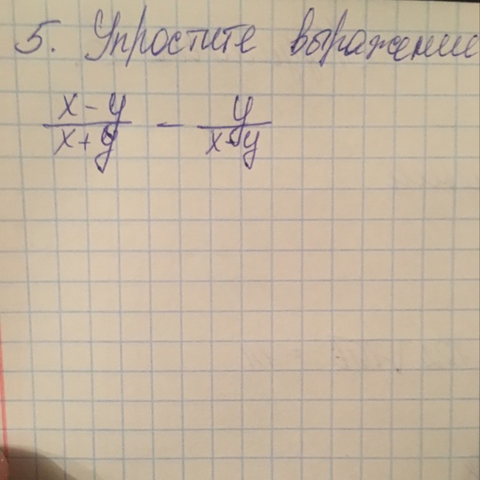 5. Упростите выражение
x-y/x+y - y/x-y